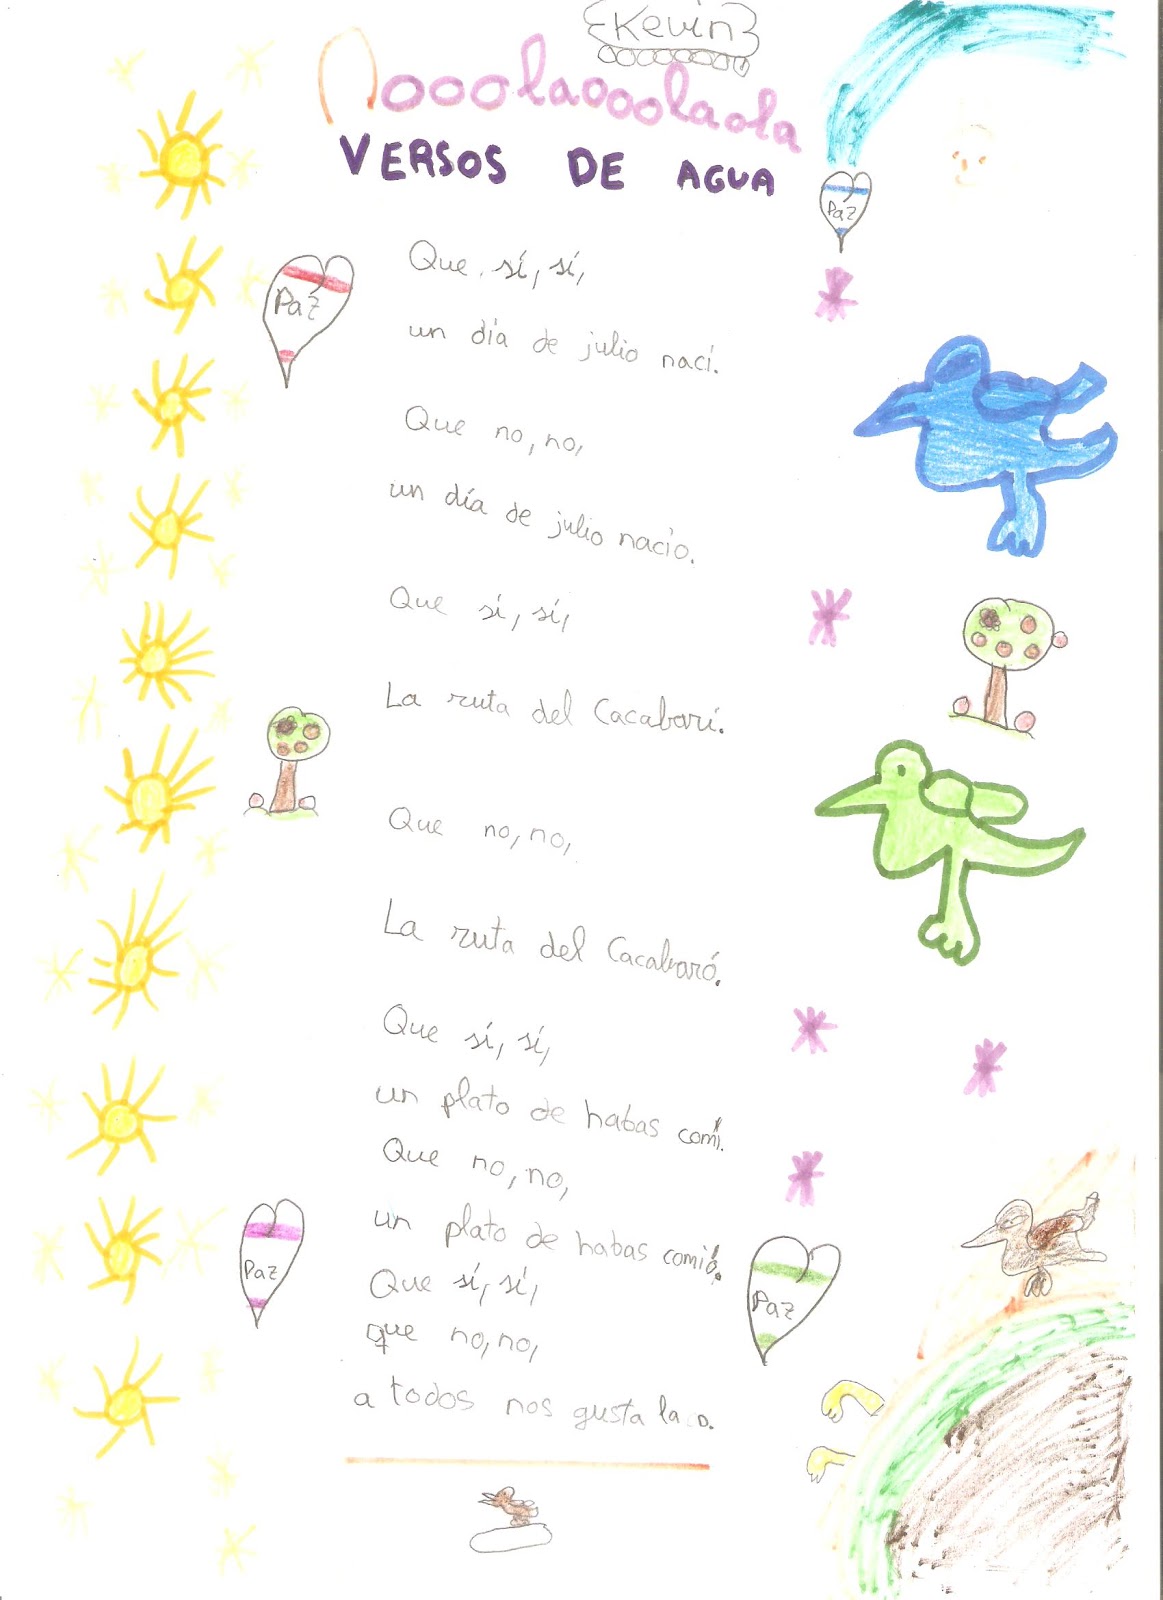 Kevin
nooolaooolaola
VERSOS DE AGUA
Paz
Paz
Que sí, sí,
un día de julio nací.
Que no, no,
un día de julio nacio.
Que sí, sí,
La ruta del Cacabarí.
Que no, no,
La ruta del Cacabaró.
Que sí, sí,
un plato de habas comí.
Que no, no,
un plato de habas comió.
Que sí, sí,
que no, no,
a todos nos gusta la
Paz
Paz